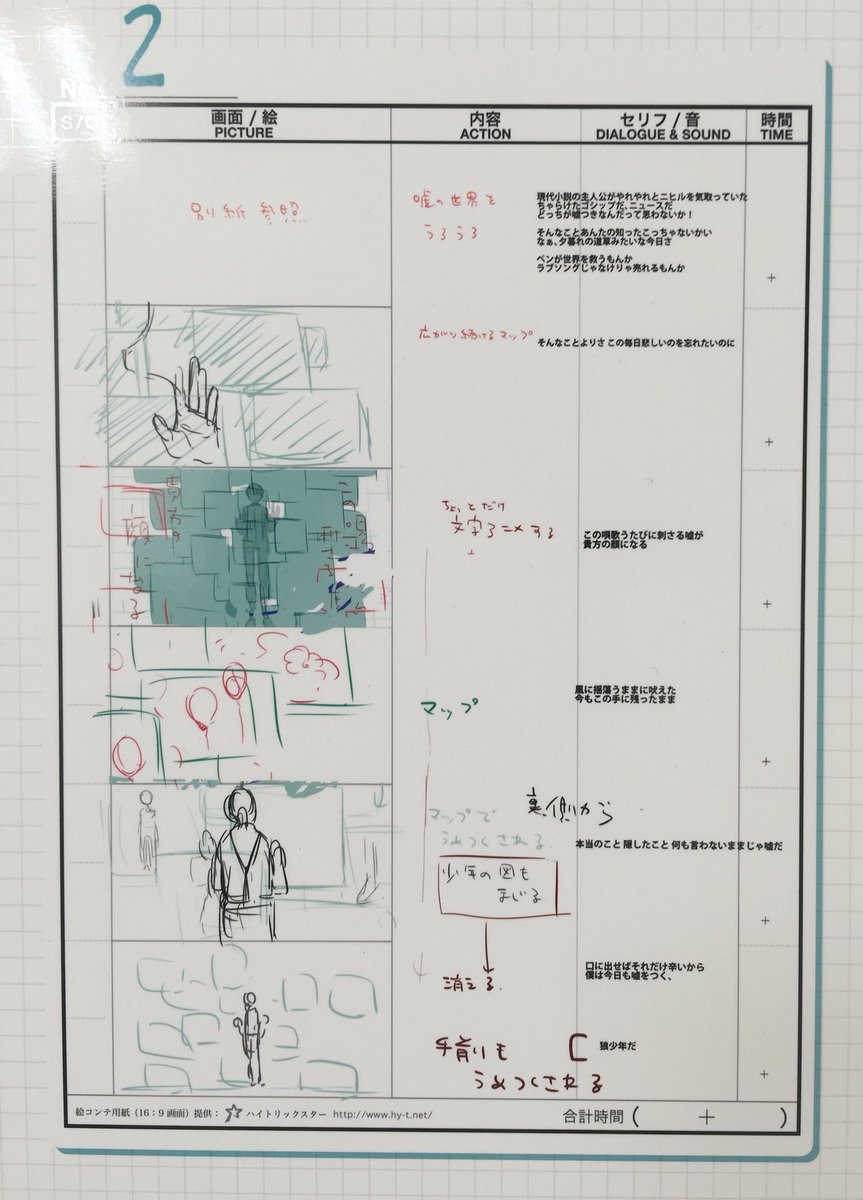 2
No
S/C
画面 / 絵
PICTURE
内容
ACTION
セリフ / 音
DIALOGUE & SOUND
時間
TIME
別紙参照
嘘の世界を
うろうろ
現代小説の主人公がやれやれとニヒルを気取っていた
ちゃらけたゴシップだ、ニュースだ
どっちが嘘つきなんだって思わないか！
そんなことあんたの知ったこっちゃないかい
なぁ、夕暮れの道草みたいな今日さ
ペンが世界を救うもんか
ラブソングじゃなけりゃ売れるもんか
+
広がり続けるマップ
そんなことよりさ この毎日悲しいのを忘れたいのに
+
貴方の
顔になる
ちょっとだけ
文字アニメする
この唄歌うたびに刺さる嘘が
貴方の顔になる
+
マップ
風に揺蕩うままに吠えた
今もこの手に残ったまま
+
裏側から
マップで
うめつくされる
少年の図も
まじる
本当のこと 隠したこと 何も言わないままじゃ嘘だ
+
消える
口に出せばそれだけ辛いから
僕は今日も嘘をつく、
うめつくされる
狼少年だ
+
絵コンテ用紙（16：9 画面）提供： ハイトリックスター http://www.hy-t.net/
合計時間 ( + )